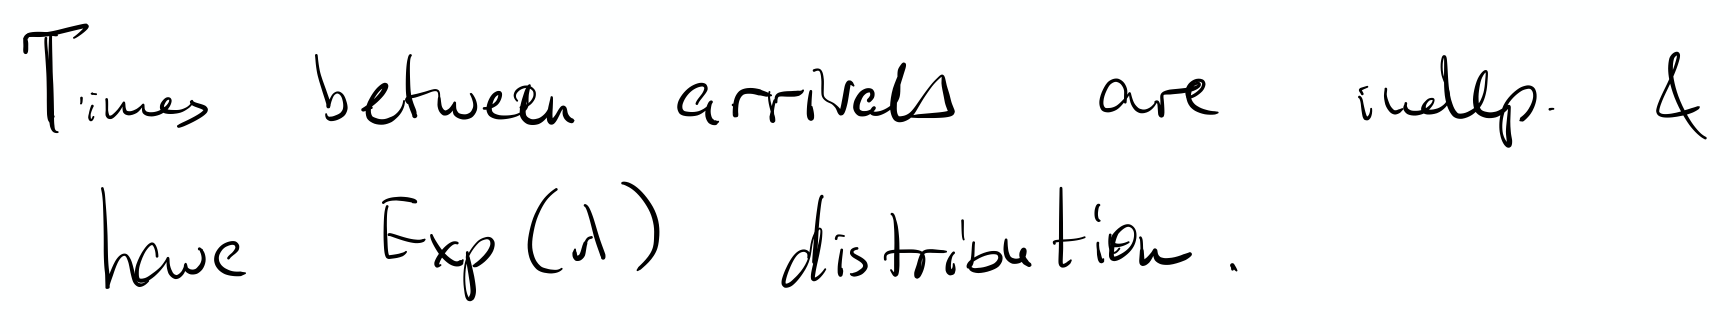 Times between arrivals are indep. &
have Exp(λ) distribution.